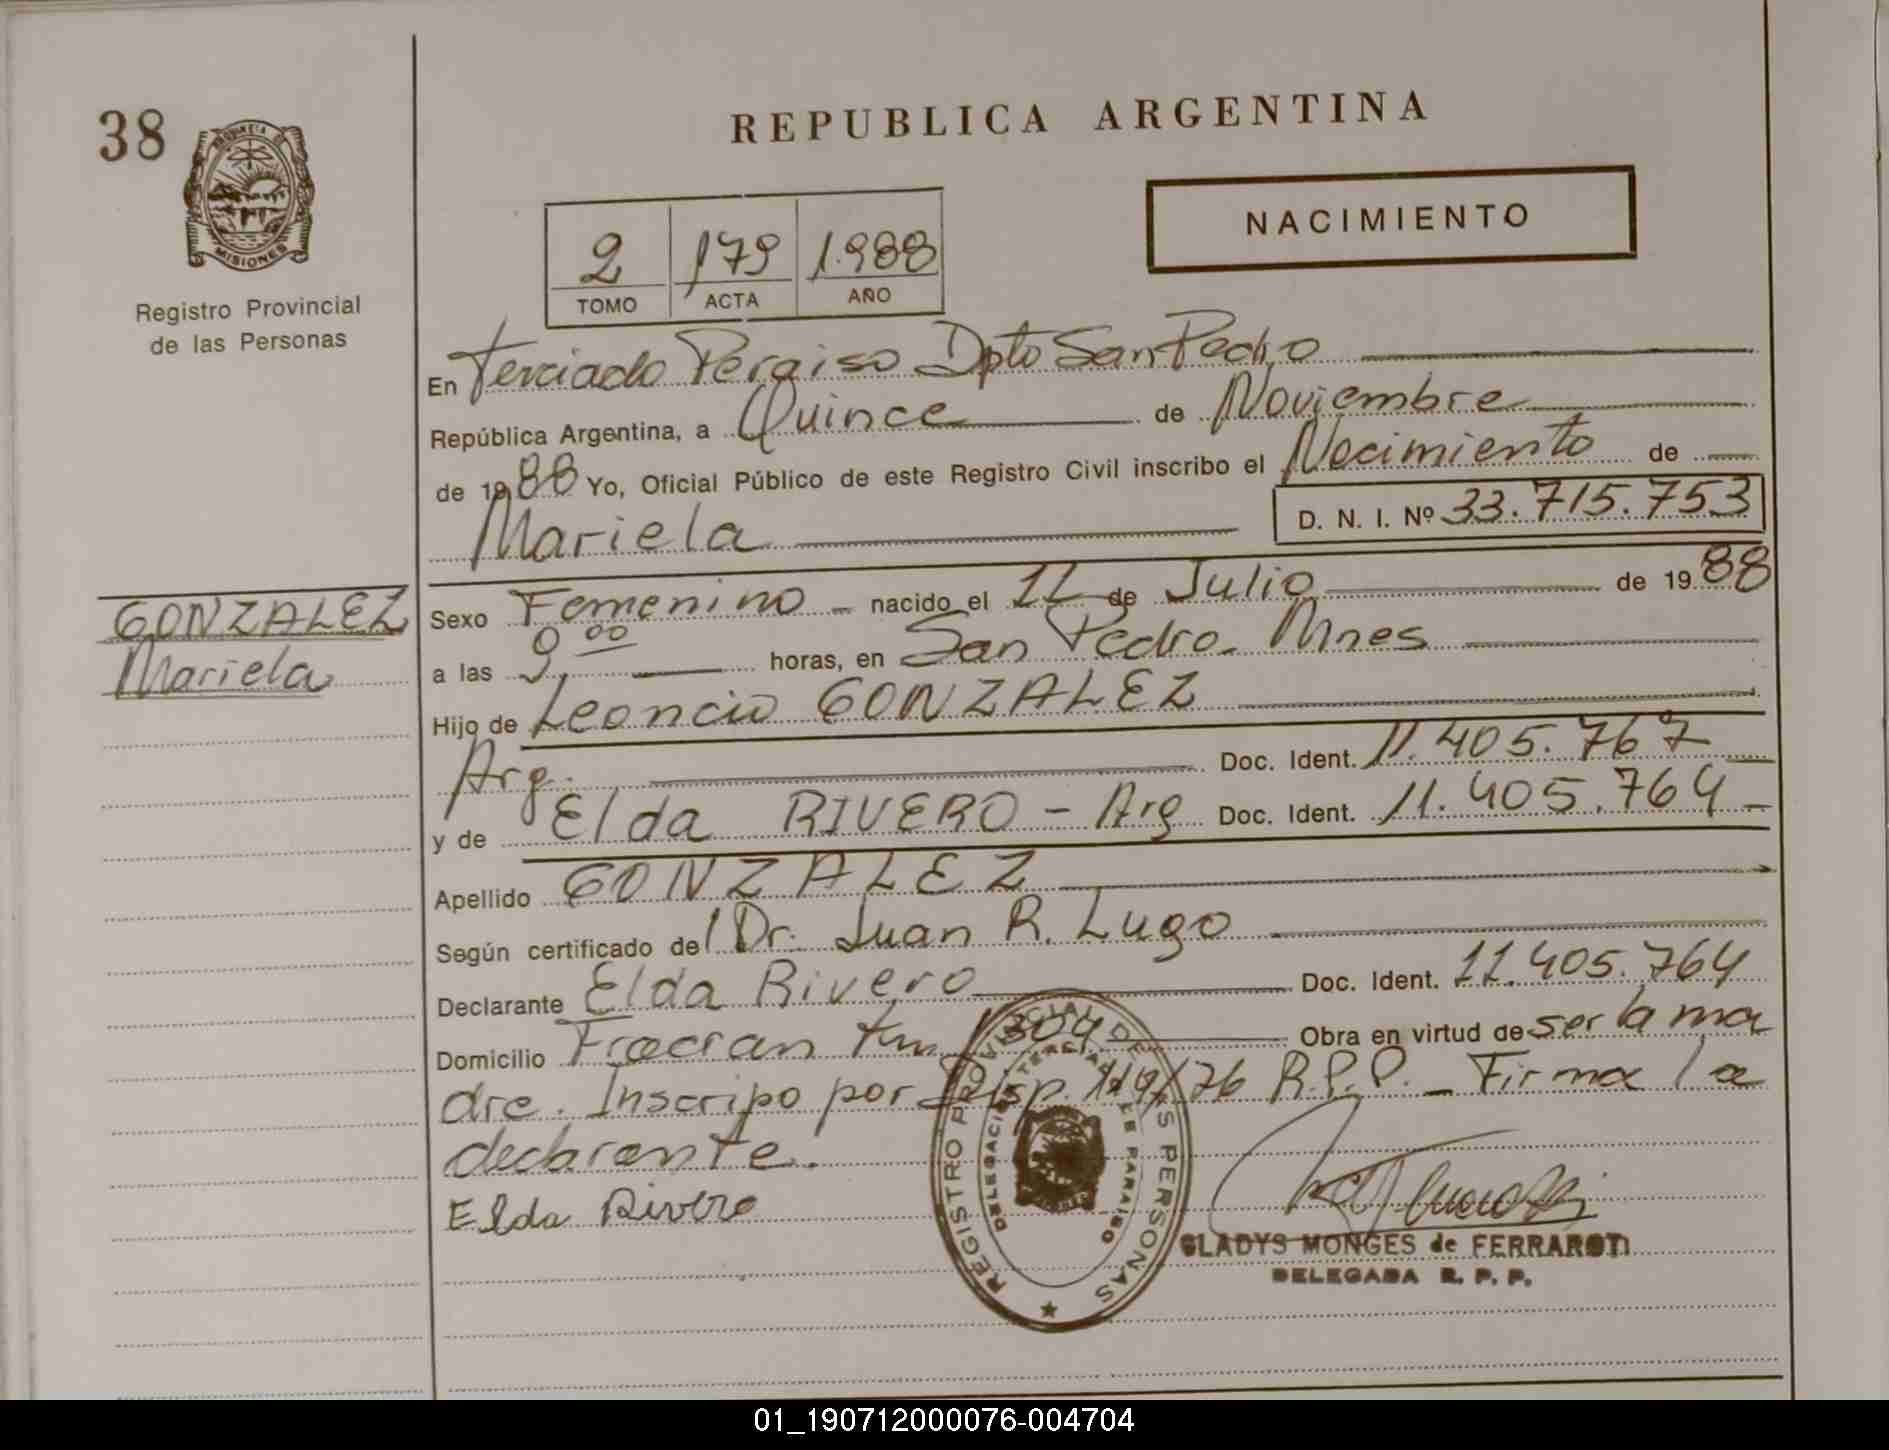 38
MISIONES
Registro Provincial
de las Personas
REPUBLICA ARGENTINA
NACIMIENTO
2 179 1.988
TOMO ACTA AÑO
En Terciado Peraiso Dpto San Pedro
República Argentina, a Quince de Noviembre
de 1988 Yo, Oficial Público de este Registro Civil inscribo el Nacimiento de
Mariela D. N. I. Nº 33.715.753
GONZALEZ
Mariela
Sexo Femenino nacido el 11 de Julio de 1988
a las 9.00 horas, en San Pedro. Mnes
Hijo de Leoncio GONZALEZ
Arg. Doc. Ident. 11.405.767
y de Elda RIVERO - Arg Doc. Ident. 11.405.764
Apellido GONZALEZ
Según certificado del Dr. Juan R. Lugo
Declarante Elda Rivero Doc. Ident. 11.405.764
Domicilio Fracran Km 1304 Obra en virtud de ser la ma
dre. Inscripo por Disp. 119/76 R.P.P. - Firma la
declarante.
Elda Rivero
REGISTRO PROVINCIAL DE LAS PERSONAS
DELEGACION DE PARAISO
GLADYS MONGES de FERRAROTI
DELEGADA R. P. P.
01_190712000076-004704